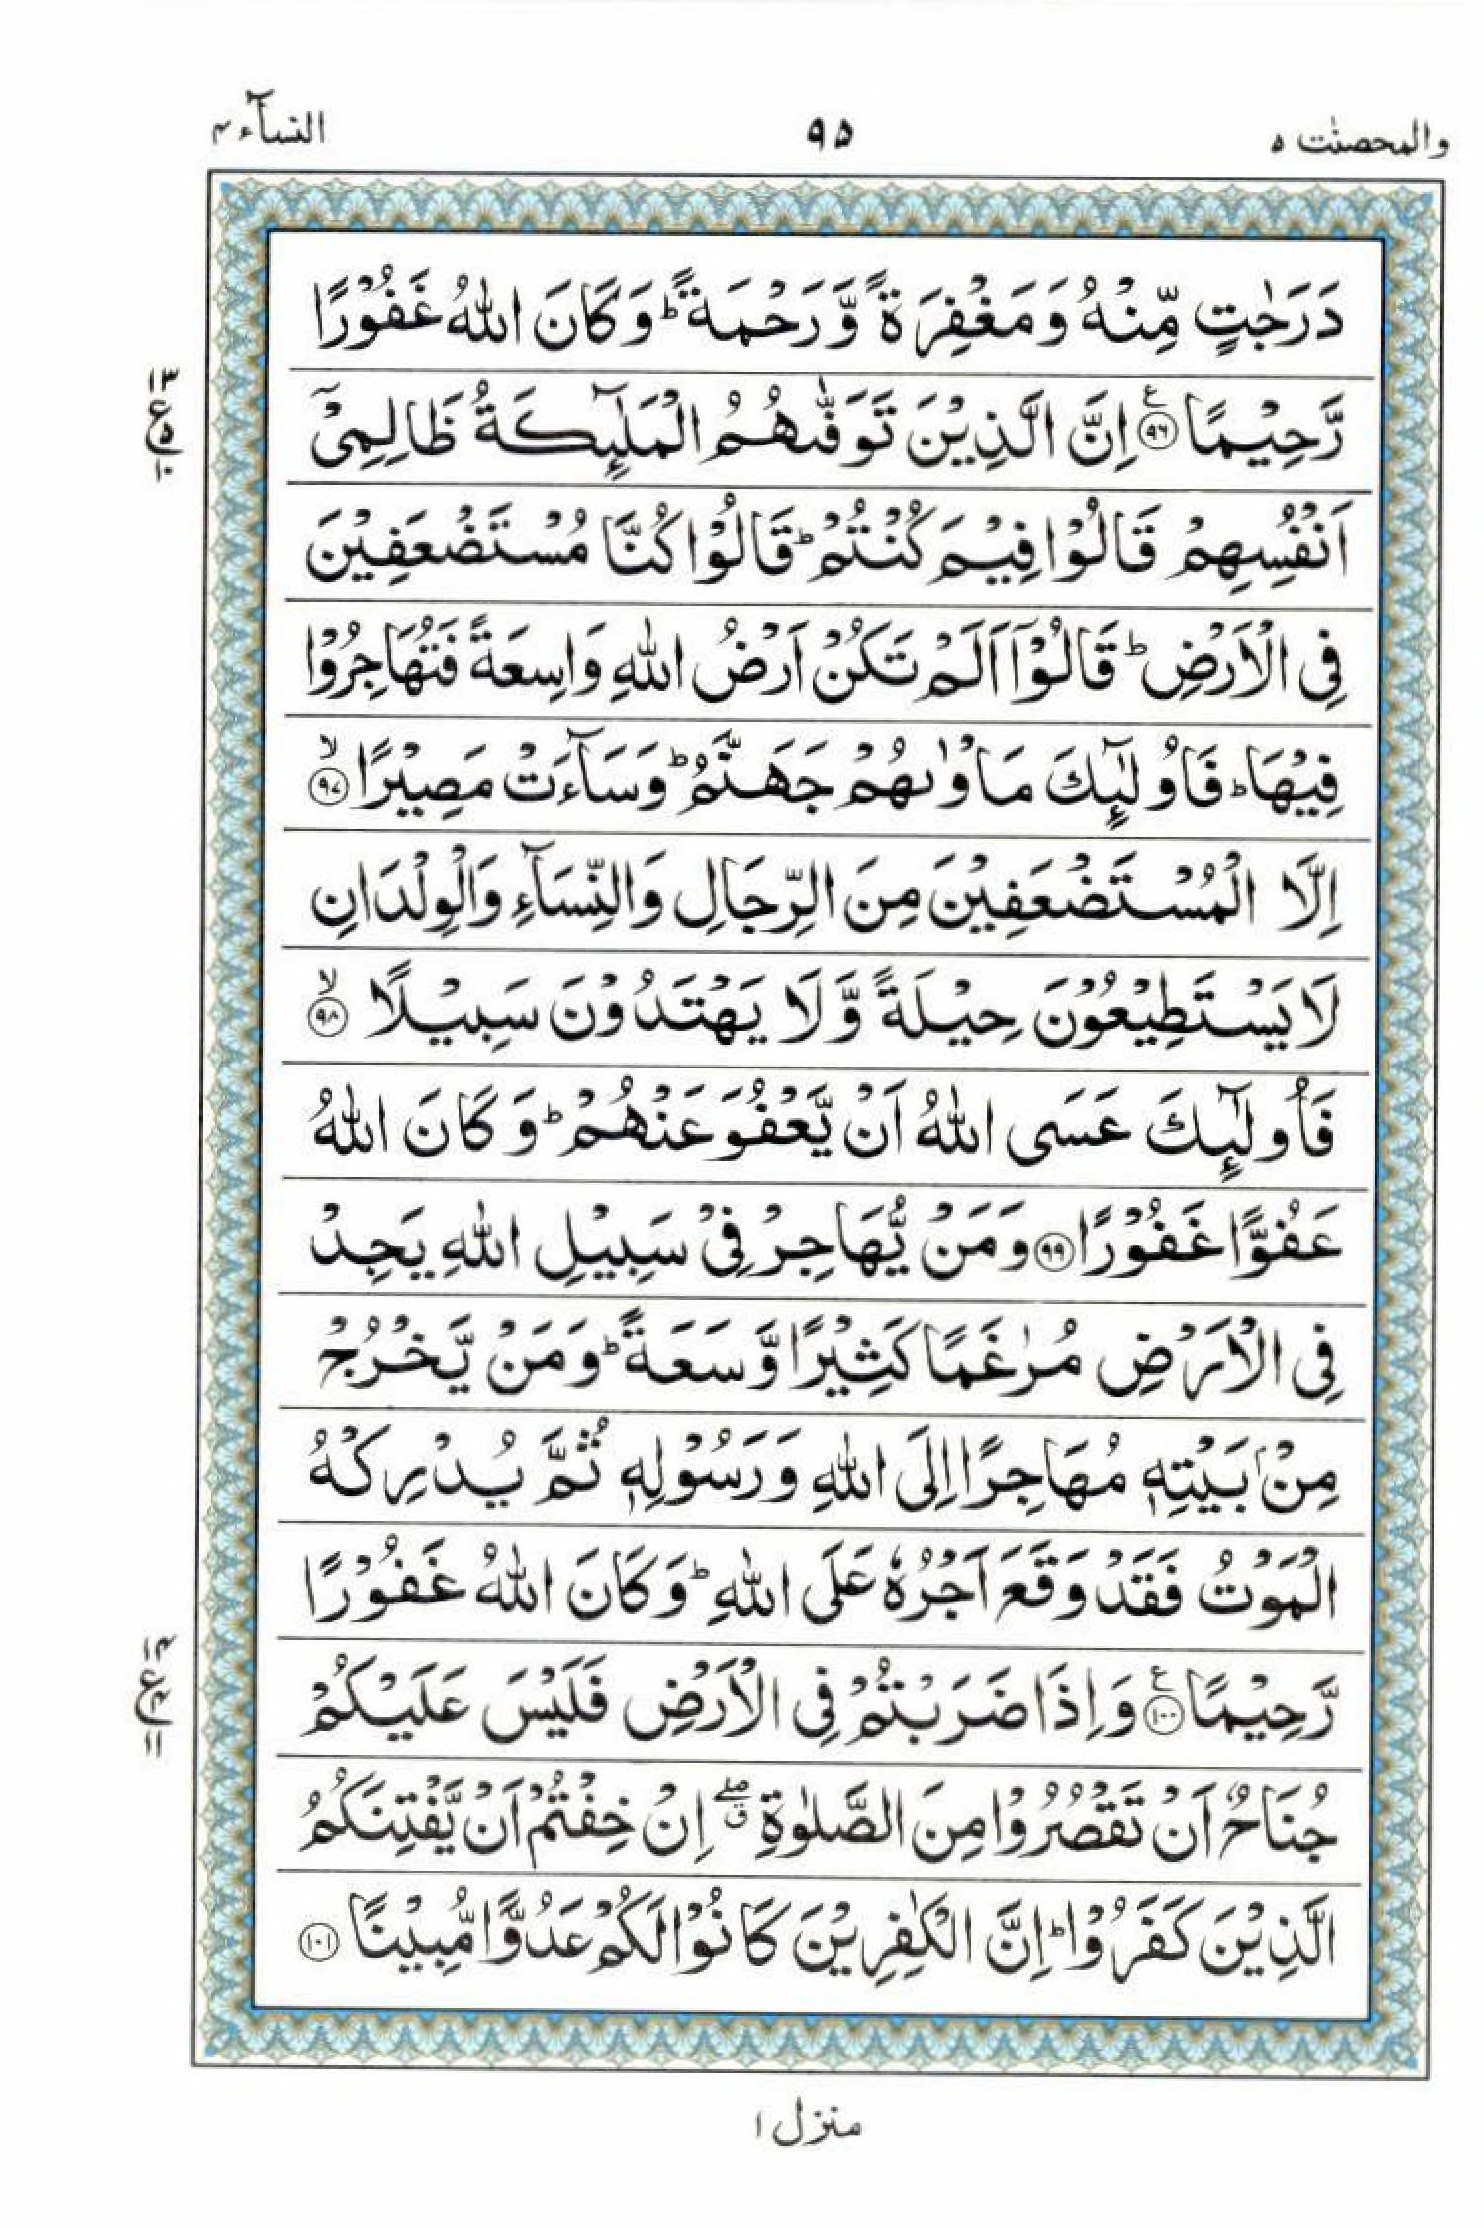 والمحصنٰت ۵ ۹۵ النسآء ۴
دَرَجٰتٍ مِّنْهُ وَمَغْفِرَةً وَّرَحْمَةً ؕ وَكَانَ اللّٰهُ غَفُوْرًا
رَّحِيْمًا ﴿۹۶﴾ ع اِنَّ الَّذِيْنَ تَوَفّٰىهُمُ الْمَلٰٓئِكَةُ ظَالِمِيْٓ
۱۳ ع ۵ ۱۰
اَنْفُسِهِمْ قَالُوْا فِيْمَ كُنْتُمْ ؕ قَالُوْا كُنَّا مُسْتَضْعَفِيْنَ
فِي الْاَرْضِ ؕ قَالُوْٓا اَلَمْ تَكُنْ اَرْضُ اللّٰهِ وَاسِعَةً فَتُهَاجِرُوْا
فِيْهَا ؕ فَاُولٰٓئِكَ مَاْوٰىهُمْ جَهَنَّمُ ؕ وَسَآءَتْ مَصِيْرًا ﴿۹۷﴾ ۙ
اِلَّا الْمُسْتَضْعَفِيْنَ مِنَ الرِّجَالِ وَالنِّسَآءِ وَالْوِلْدَانِ
لَا يَسْتَطِيْعُوْنَ حِيْلَةً وَّلَا يَهْتَدُوْنَ سَبِيْلًا ﴿۹۸﴾ ۙ
فَاُولٰٓئِكَ عَسَى اللّٰهُ اَنْ يَّعْفُوَ عَنْهُمْ ؕ وَكَانَ اللّٰهُ
عَفُوًّا غَفُوْرًا ﴿۹۹﴾ وَمَنْ يُّهَاجِرْ فِيْ سَبِيْلِ اللّٰهِ يَجِدْ
فِي الْاَرْضِ مُرٰغَمًا كَثِيْرًا وَّسَعَةً ؕ وَمَنْ يَّخْرُجْ
مِنْۢ بَيْتِهٖ مُهَاجِرًا اِلَى اللّٰهِ وَرَسُوْلِهٖ ثُمَّ يُدْرِكْهُ
الْمَوْتُ فَقَدْ وَقَعَ اَجْرُهٗ عَلَى اللّٰهِ ؕ وَكَانَ اللّٰهُ غَفُوْرًا
رَّحِيْمًا ﴿۱۰۰﴾ ع وَاِذَا ضَرَبْتُمْ فِي الْاَرْضِ فَلَيْسَ عَلَيْكُمْ
۱۴ ع ۴ ۱۱
جُنَاحٌ اَنْ تَقْصُرُوْا مِنَ الصَّلٰوةِ ۖق اِنْ خِفْتُمْ اَنْ يَّفْتِنَكُمُ
الَّذِيْنَ كَفَرُوْا ؕ اِنَّ الْكٰفِرِيْنَ كَانُوْا لَكُمْ عَدُوًّا مُّبِيْنًا ﴿۱۰۱﴾
منزل ۱